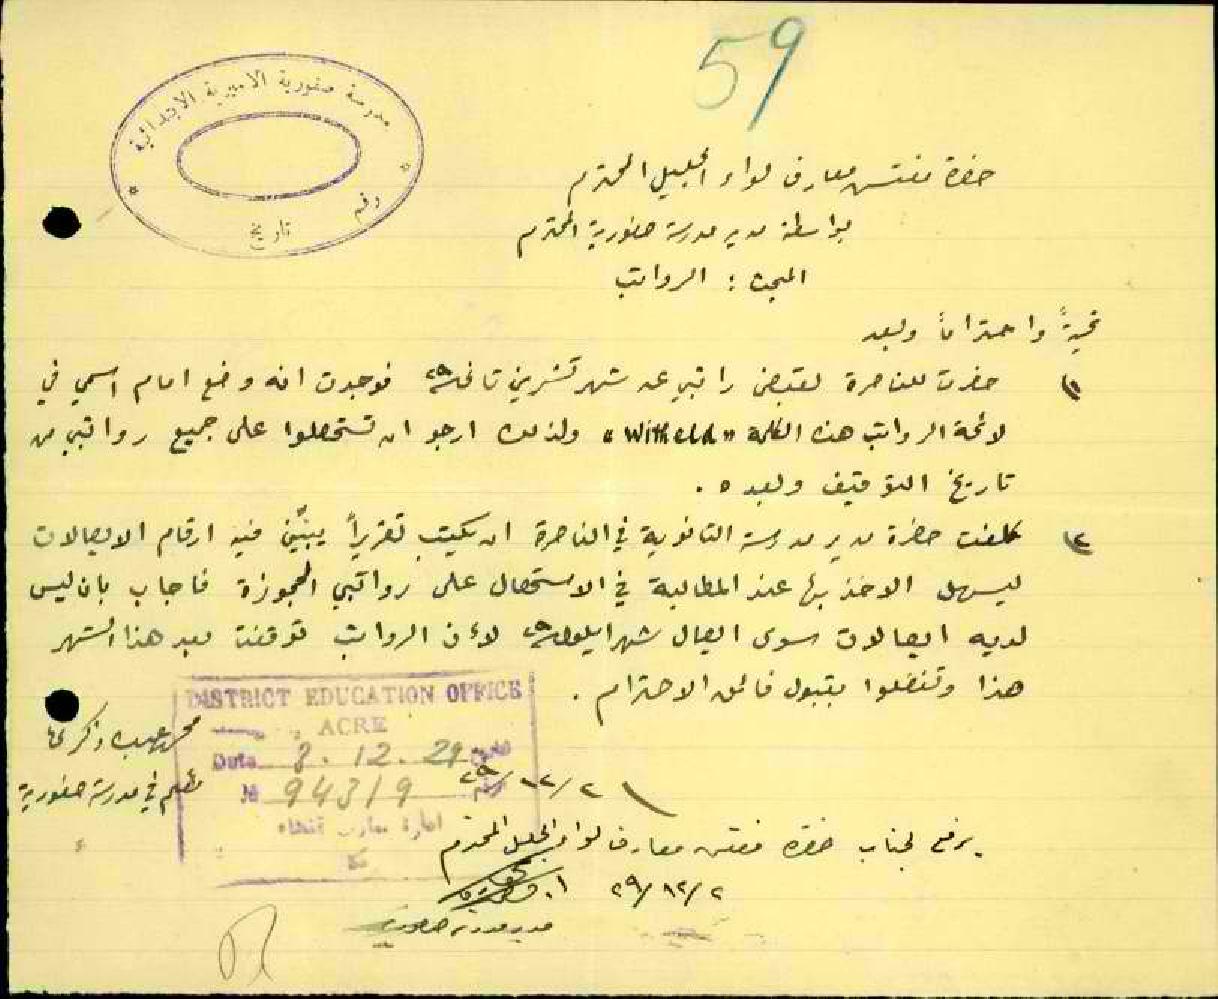 59
مدرسة صفورية الاميرية الابتدائية
رقم
تاريخ
حضرة مفتش معارف لواء الجليل المحترم
بواسطة مدير مدرسة صفورية المحترم
المبحث : الرواتب
تحيةً واحتراماً وبعد
١) حضرت للناصرة لقبض راتبي عن شهر تشرين ثاني ٢٩ فوجدت انه وضع امام اسمي في
لائحة الرواتب هذه الكلمة "Witheld" ولذلك ارجو ان تستحصلوا على جميع رواتبي من
تاريخ التوقيف وبعده .
٢) كلفت حضرة مدير مدرسة الثانوية في الناصرة ان يكتب تقريراً يبيّن فيه ارقام الايصالات
ليسهل الاخذ بها عند المطالبة في الاستحصال على رواتبي المحجوزة فاجاب بان ليس
لديه ايصالات سوى ايصال شهر ايلول ٢٩ لأن الرواتب توقفت بعد هذا الشهر
هذا وتفضلوا بقبول فائق الاحترام .
DISTRICT EDUCATION OFFICE
ACRE
Date 3.12.29 التاريخ
№ 94319 الرقم
ادارة معارف قضاء
عكا
محمد زكريا
معلم في مدرسة صفورية
٢/١٢/٢٩
يرفع لجناب حضرة مفتش معارف لواء الجليل المحترم
٢/١٢/٢٩
مدير مدرسة صفورية